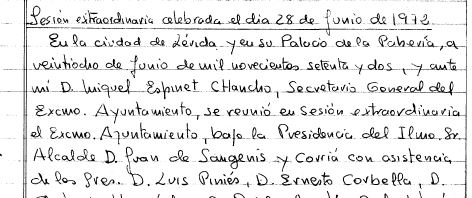 Sesión extraordinaria celebrada el dia 28 de Junio de 1972
En la ciudad de Lérida y en su Palacio de la Pahería, a
veintiocho de junio de mil novecientos setenta y dos, y ante
mi D. Miquel Espinet CHancho, Secretario General del
Excmo. Ayuntamiento, se reunió en sesión extraordinaria
el Excmo. Ayuntamiento, bajo la Presidencia del Ilmo. Sr.
Alcalde D. Juan de Sangenís y Corriá con asistencia
de los Sres. D. Luis Piniés, D. Ernesto Corbella, D.